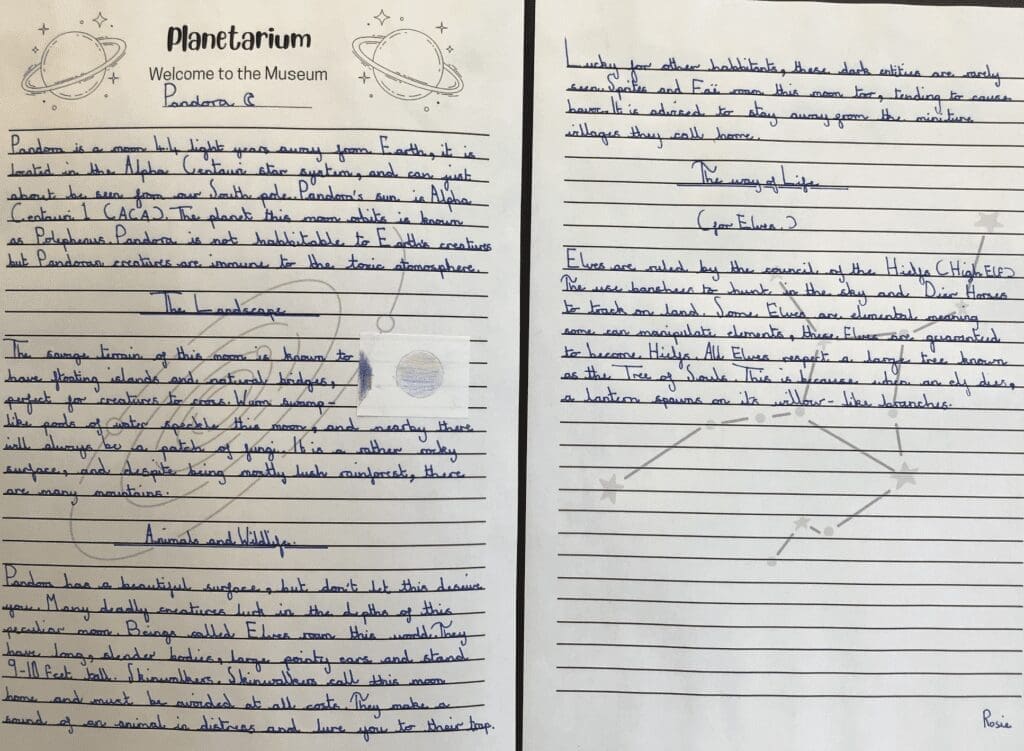 Planetarium
Welcome to the Museum
Pandora
Pandora is a moon 4.4 light years away from Earth, it is
located in the Alpha Centauri star system, and can just
about be seen from our South pole. Pandora's sun is Alpha
Centauri 1 (ACA). The planet this moon orbits is known
as Polyphemus. Pandora is not habbitable to Earth's creatures
but Pandoran creatures are immune to the toxic atomosphere.
The Landscape
The savage terrain of this moon is known to
have floating islands and natural bridges,
perfect for creatures to cross. Warm swamp-
like pools of water speckle this moon, and nearby there
will always be a patch of fungi. It is a rather rocky
surface, and despite being mostly lush rainforest, there
are many mountains.
Animals and Wildlife.
Pandora has a beautiful surface, but don't let this deceive
you. Many deadly creatures lurk in the depths of this
peculiar moon. Beings called Elves roam this world. They
have long, slender bodies, large pointy ears and stand
9-10 feet tall. Skinwalkers. Skinwalkers call this moon
home and must be avoided at all costs. They make a
sound of an animal in distress and lure you to their trap.
Lucky for other habbitants, these dark entities are rarely
seen. Sprites and Faë roam this moon too, tending to cause
havoc. It is advised to stay away from the miniture
villages they call home.
The way of Life
(for Elves.)
Elves are ruled by the council of the Hielfs (High Elf)
The use banshees to hunt in the sky and Dier Horses
to track on land. Some Elves are elemental meaning
some can manipulate elements, these Elves are guaranteed
to become Hielfs. All Elves respect a large tree known
as the Tree of Souls. This is because when an elf dies,
a lantern spawns on its willow-like branches.
Rosie